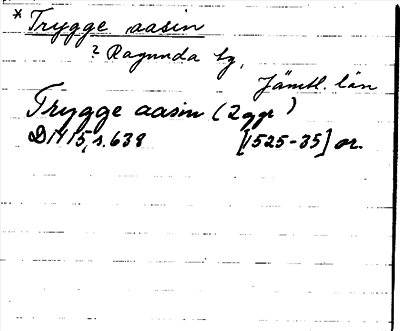 * Trygge aasin
? Ragunda sg,
Jämtl. län
Trygge aasin (2 ggr)
DN 15, s. 638 [1525-35] or.